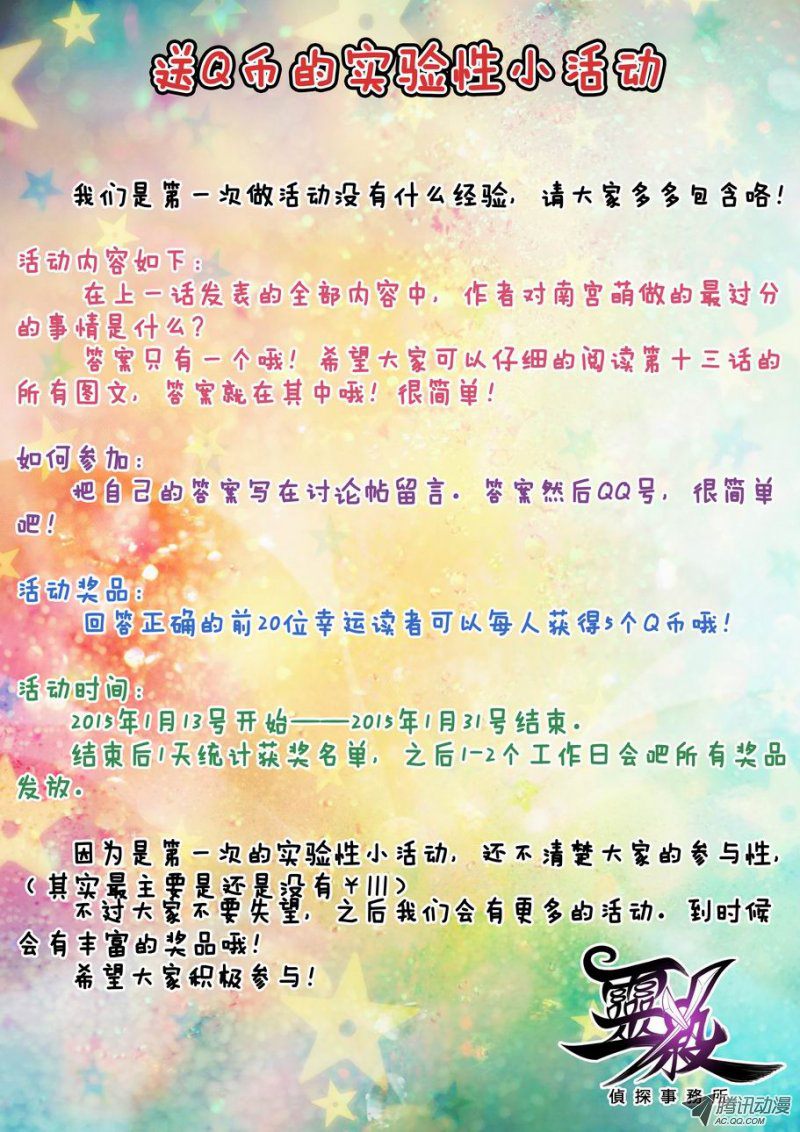 送Q币的实验性小活动
我们是第一次做活动没有什么经验，请大家多多包含咯！
活动内容如下：
在上一话发表的全部内容中，作者对南宫萌做的最过分
的事情是什么？
答案只有一个哦！希望大家可以仔细的阅读第十三话的
所有图文，答案就在其中哦！很简单！
如何参加：
把自己的答案写在讨论帖留言。答案然后QQ号，很简单
吧！
活动奖品：
回答正确的前20位幸运读者可以每人获得5个Q币哦！
活动时间：
2015年1月13号开始——2015年1月31号结束。
结束后1天统计获奖名单，之后1-2个工作日会吧所有奖品
发放。
因为是第一次的实验性小活动，还不清楚大家的参与性，
（其实最主要是还是没有￥|||）
不过大家不要失望，之后我们会有更多的活动。到时候
会有丰富的奖品哦！
希望大家积极参与！
靈殺
偵探事務所
腾讯动漫
AC.QQ.COM